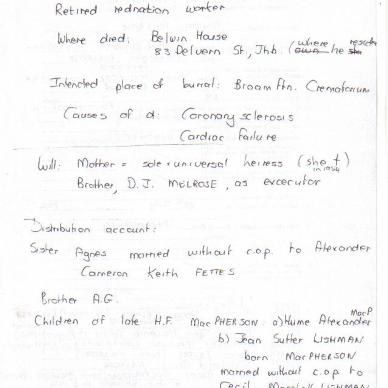 Retired rednation worker
Where died: Belwin House
83 Delvern St., Jhb. (where he resides
Intended place of burial: Braamftn. Crematorium
Causes of d: Coronary sclerosis
Cardiac Failure
Will: Mother = sole + universal heiress (she †
in 1954
Brother, D.J. MELROSE, as excecutor
Distribution account:
Sister Agnes married without c.o.p. to Alexander
Cameron Keith FETTES
Brother A.G.
Children of late H.F. MacPHERSON: a) Hume Alexander MacP
b) Jean Sutter LISHMAN
born MacPHERSON
married without c.o.p to
Cecil LISHMAN